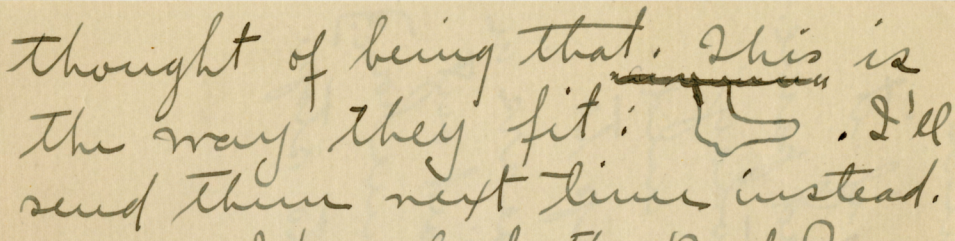 thought of being that. This is
the way they fit: . I'll
send them next time instead.